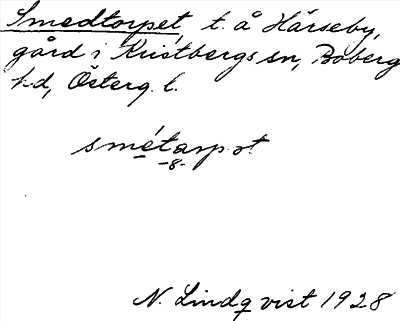 Smedtorpet, t. å Härseby,
gård i Kristbergs sn, Boberg
hd, Österg. l.
smétarpat
-8-
N. Lindqvist 1928